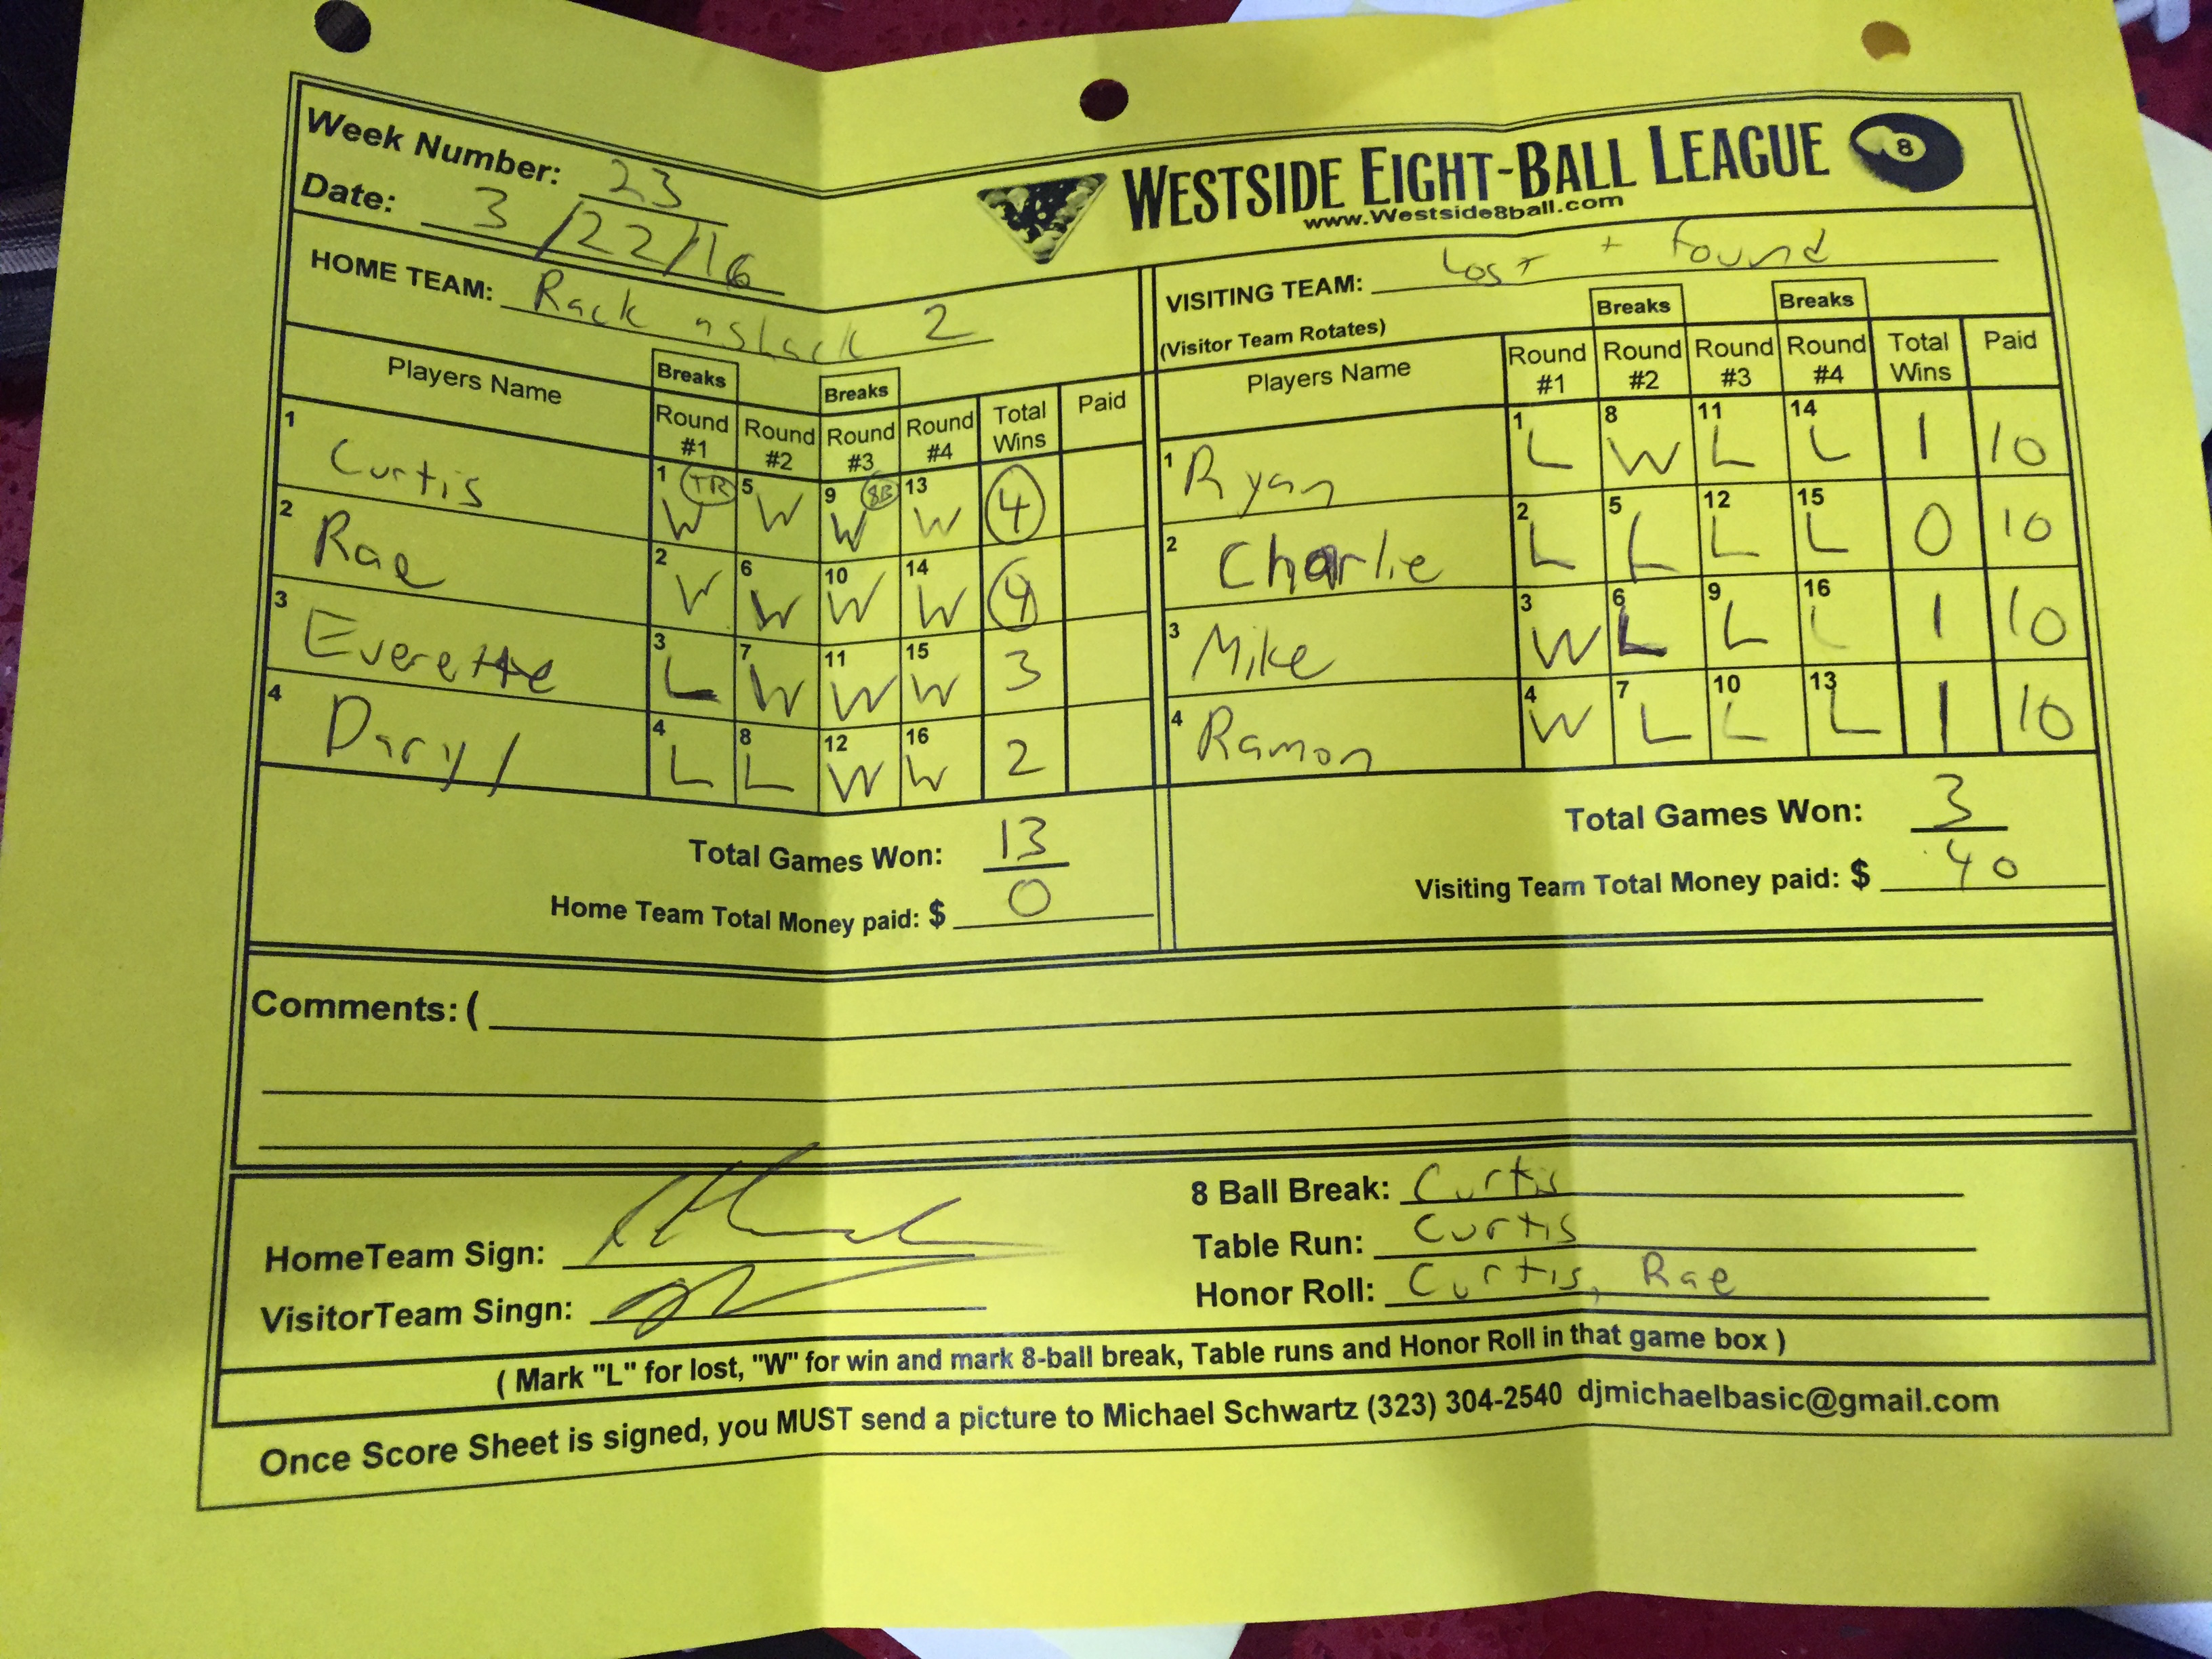 Week Number: 23
Date: 3/22/16
WESTSIDE EIGHT-BALL LEAGUE 8
www.Westside8ball.com
HOME TEAM: Rack nstack 2
Players Name Breaks Breaks
Round #1 Round #2 Round #3 Round #4 Total Wins Paid
1 Curtis 1 TR W 5 W 9 8B W 13 W 4
2 Rae 2 W 6 W 10 W 14 W 4
3 Everette 3 L 7 W 11 W 15 W 3
4 Daryl 4 L 8 L 12 W 16 W 2
Total Games Won: 13
Home Team Total Money paid: $ 0
VISITING TEAM: Lost + Found
(Visitor Team Rotates) Breaks Breaks
Players Name Round #1 Round #2 Round #3 Round #4 Total Wins Paid
1 Ryan 1 L 8 W 11 L 14 L 1 10
2 Charlie 2 L 5 L 12 L 15 L 0 10
3 Mike 3 W 6 L 9 L 16 L 1 10
4 Ramon 4 W 7 L 10 L 13 L 1 10
Total Games Won: 3
Visiting Team Total Money paid: $ 40
Comments: (
HomeTeam Sign:
VisitorTeam Singn:
8 Ball Break: Curtis
Table Run: Curtis
Honor Roll: Curtis, Rae
( Mark "L" for lost, "W" for win and mark 8-ball break, Table runs and Honor Roll in that game box )
Once Score Sheet is signed, you MUST send a picture to Michael Schwartz (323) 304-2540 djmichaelbasic@gmail.com